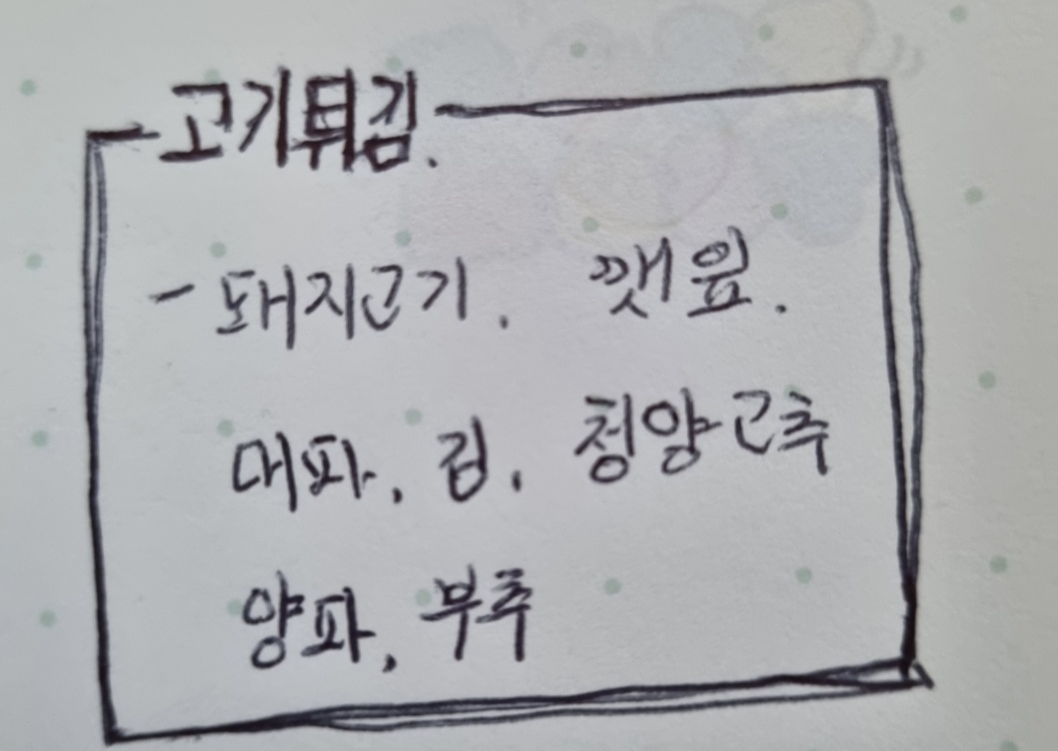 고기튀김.
- 돼지고기. 깻잎.
대파. 김. 청양고추
양파. 부추